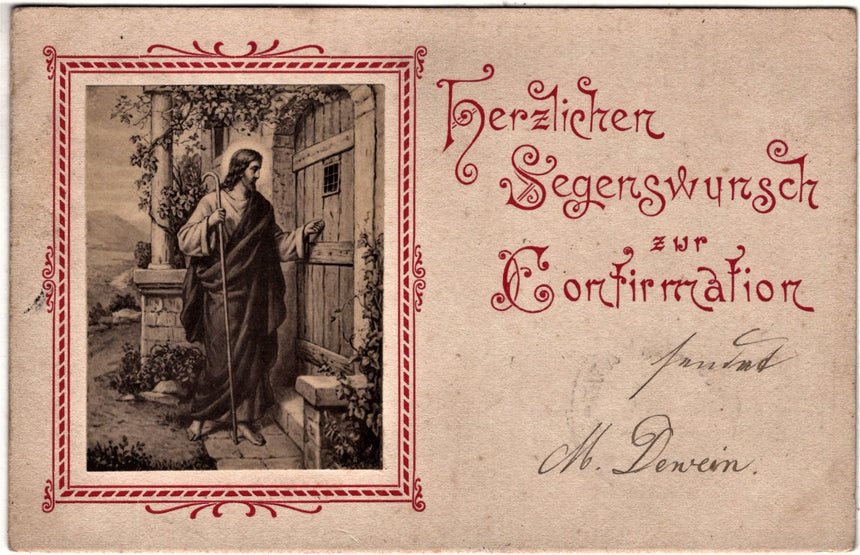 Herzlichen
Segenswunsch
zur
Confirmation
sendet
M. Dewein.